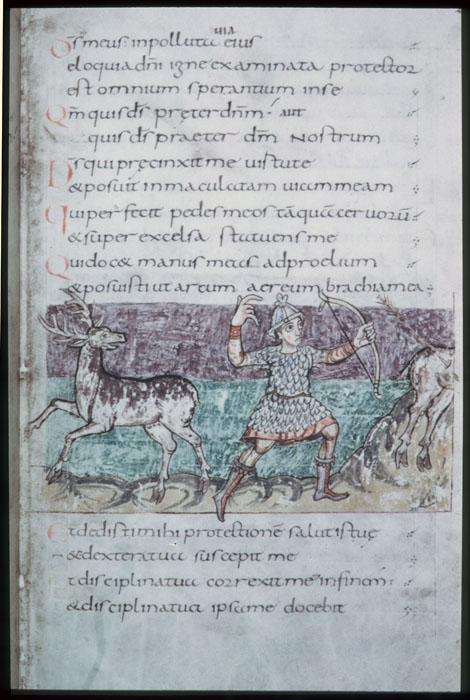 uia
Ds meus inpolluta eius
eloquia dn̄i igne examinata protector
est omnium sperantium inse
Qm̄ quis ds̄ pręter dn̄m aut
quis ds̄ praeter dm̄ nostrum
Ds qui pręcinxit me uirtute
& posuit inmaculatam uiam meam
Qui perfecit pedes meos tāquā ceruorū
& super excelsa statuens me
Qui doc& manus meas ad proelium
& posuisti ut arcum aereum brachia mea
Et dedisti mihi protectionē salutis tuę
& dextera tua suscepit me
Et disciplina tua correxit me infinem
& disciplina tua ipsa me docebit